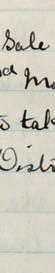 Sale
d Mo
to tak
Distr